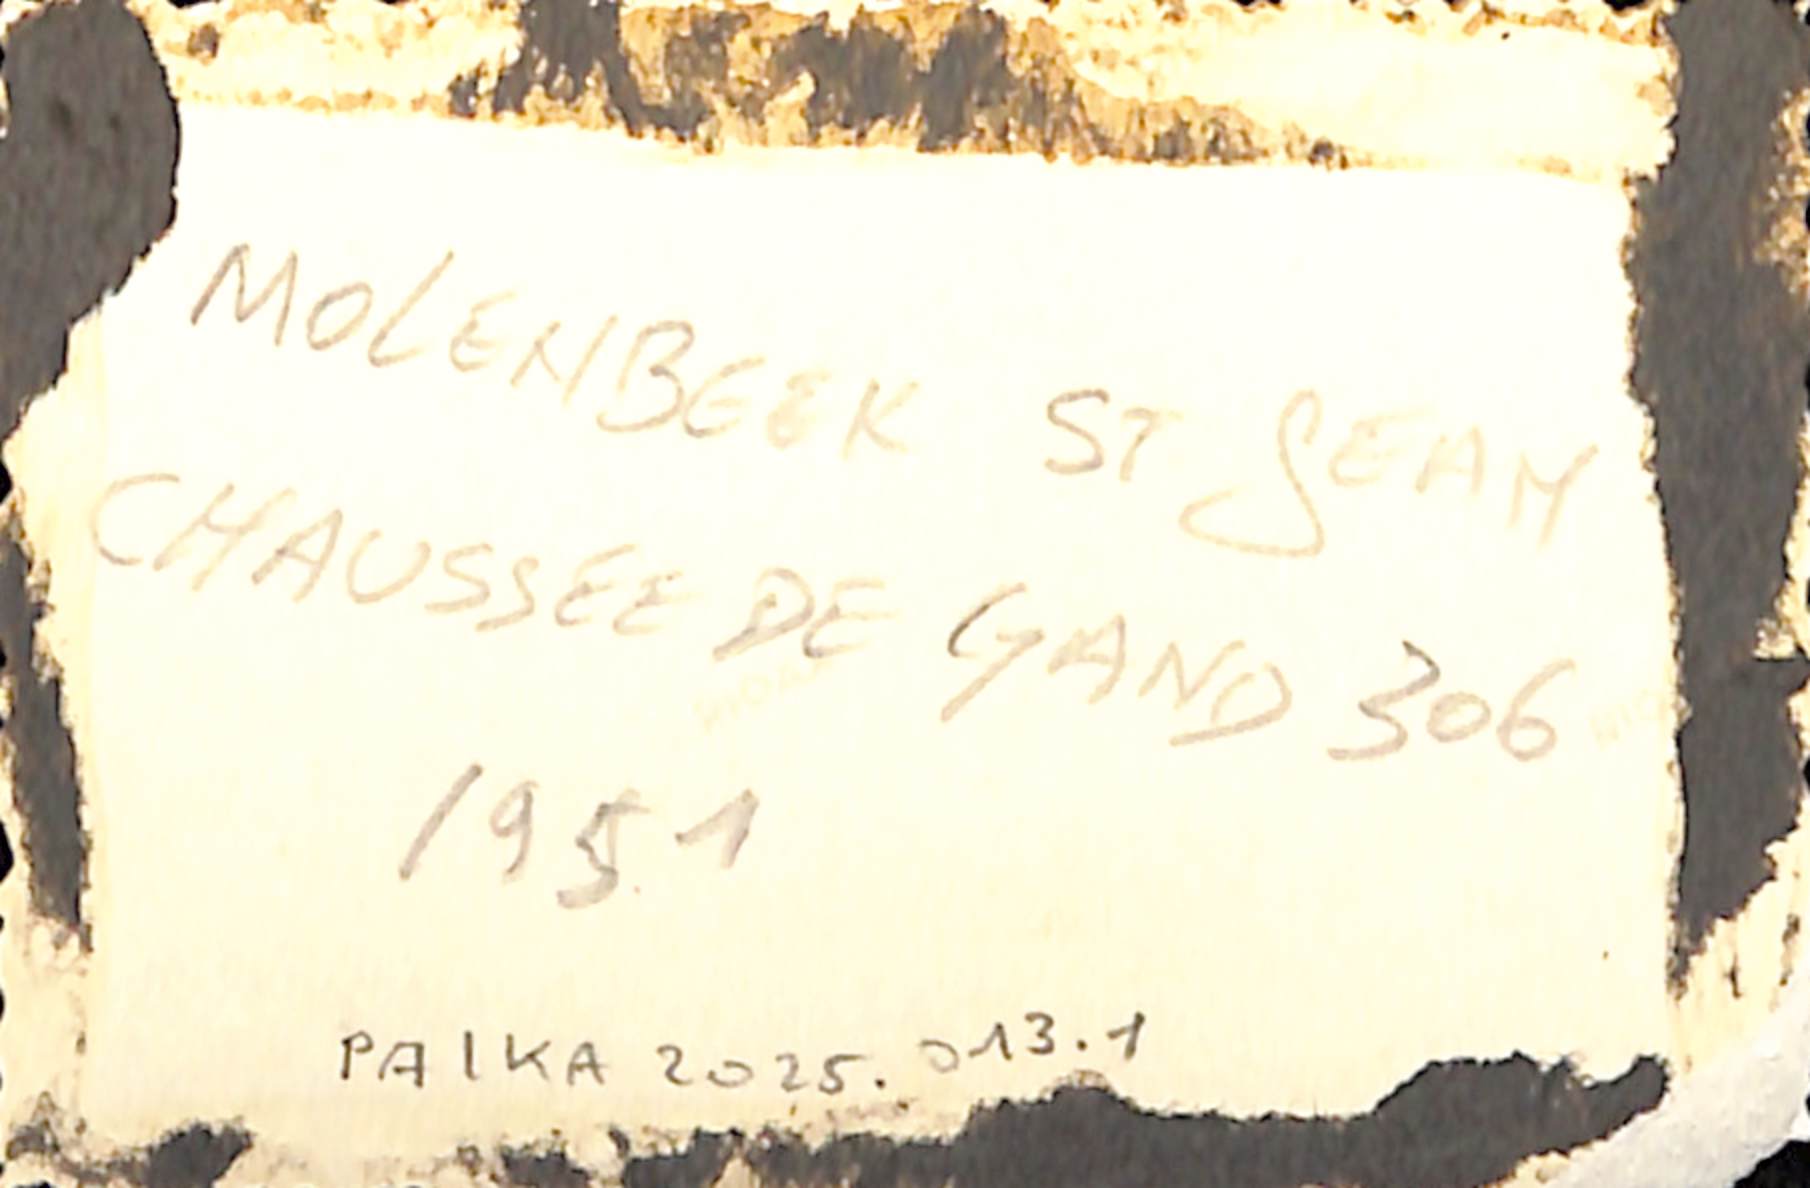 MOLENBEEK ST JEAN
CHAUSSÉE DE GAND 306
1951
PAIKA 2025.013.1